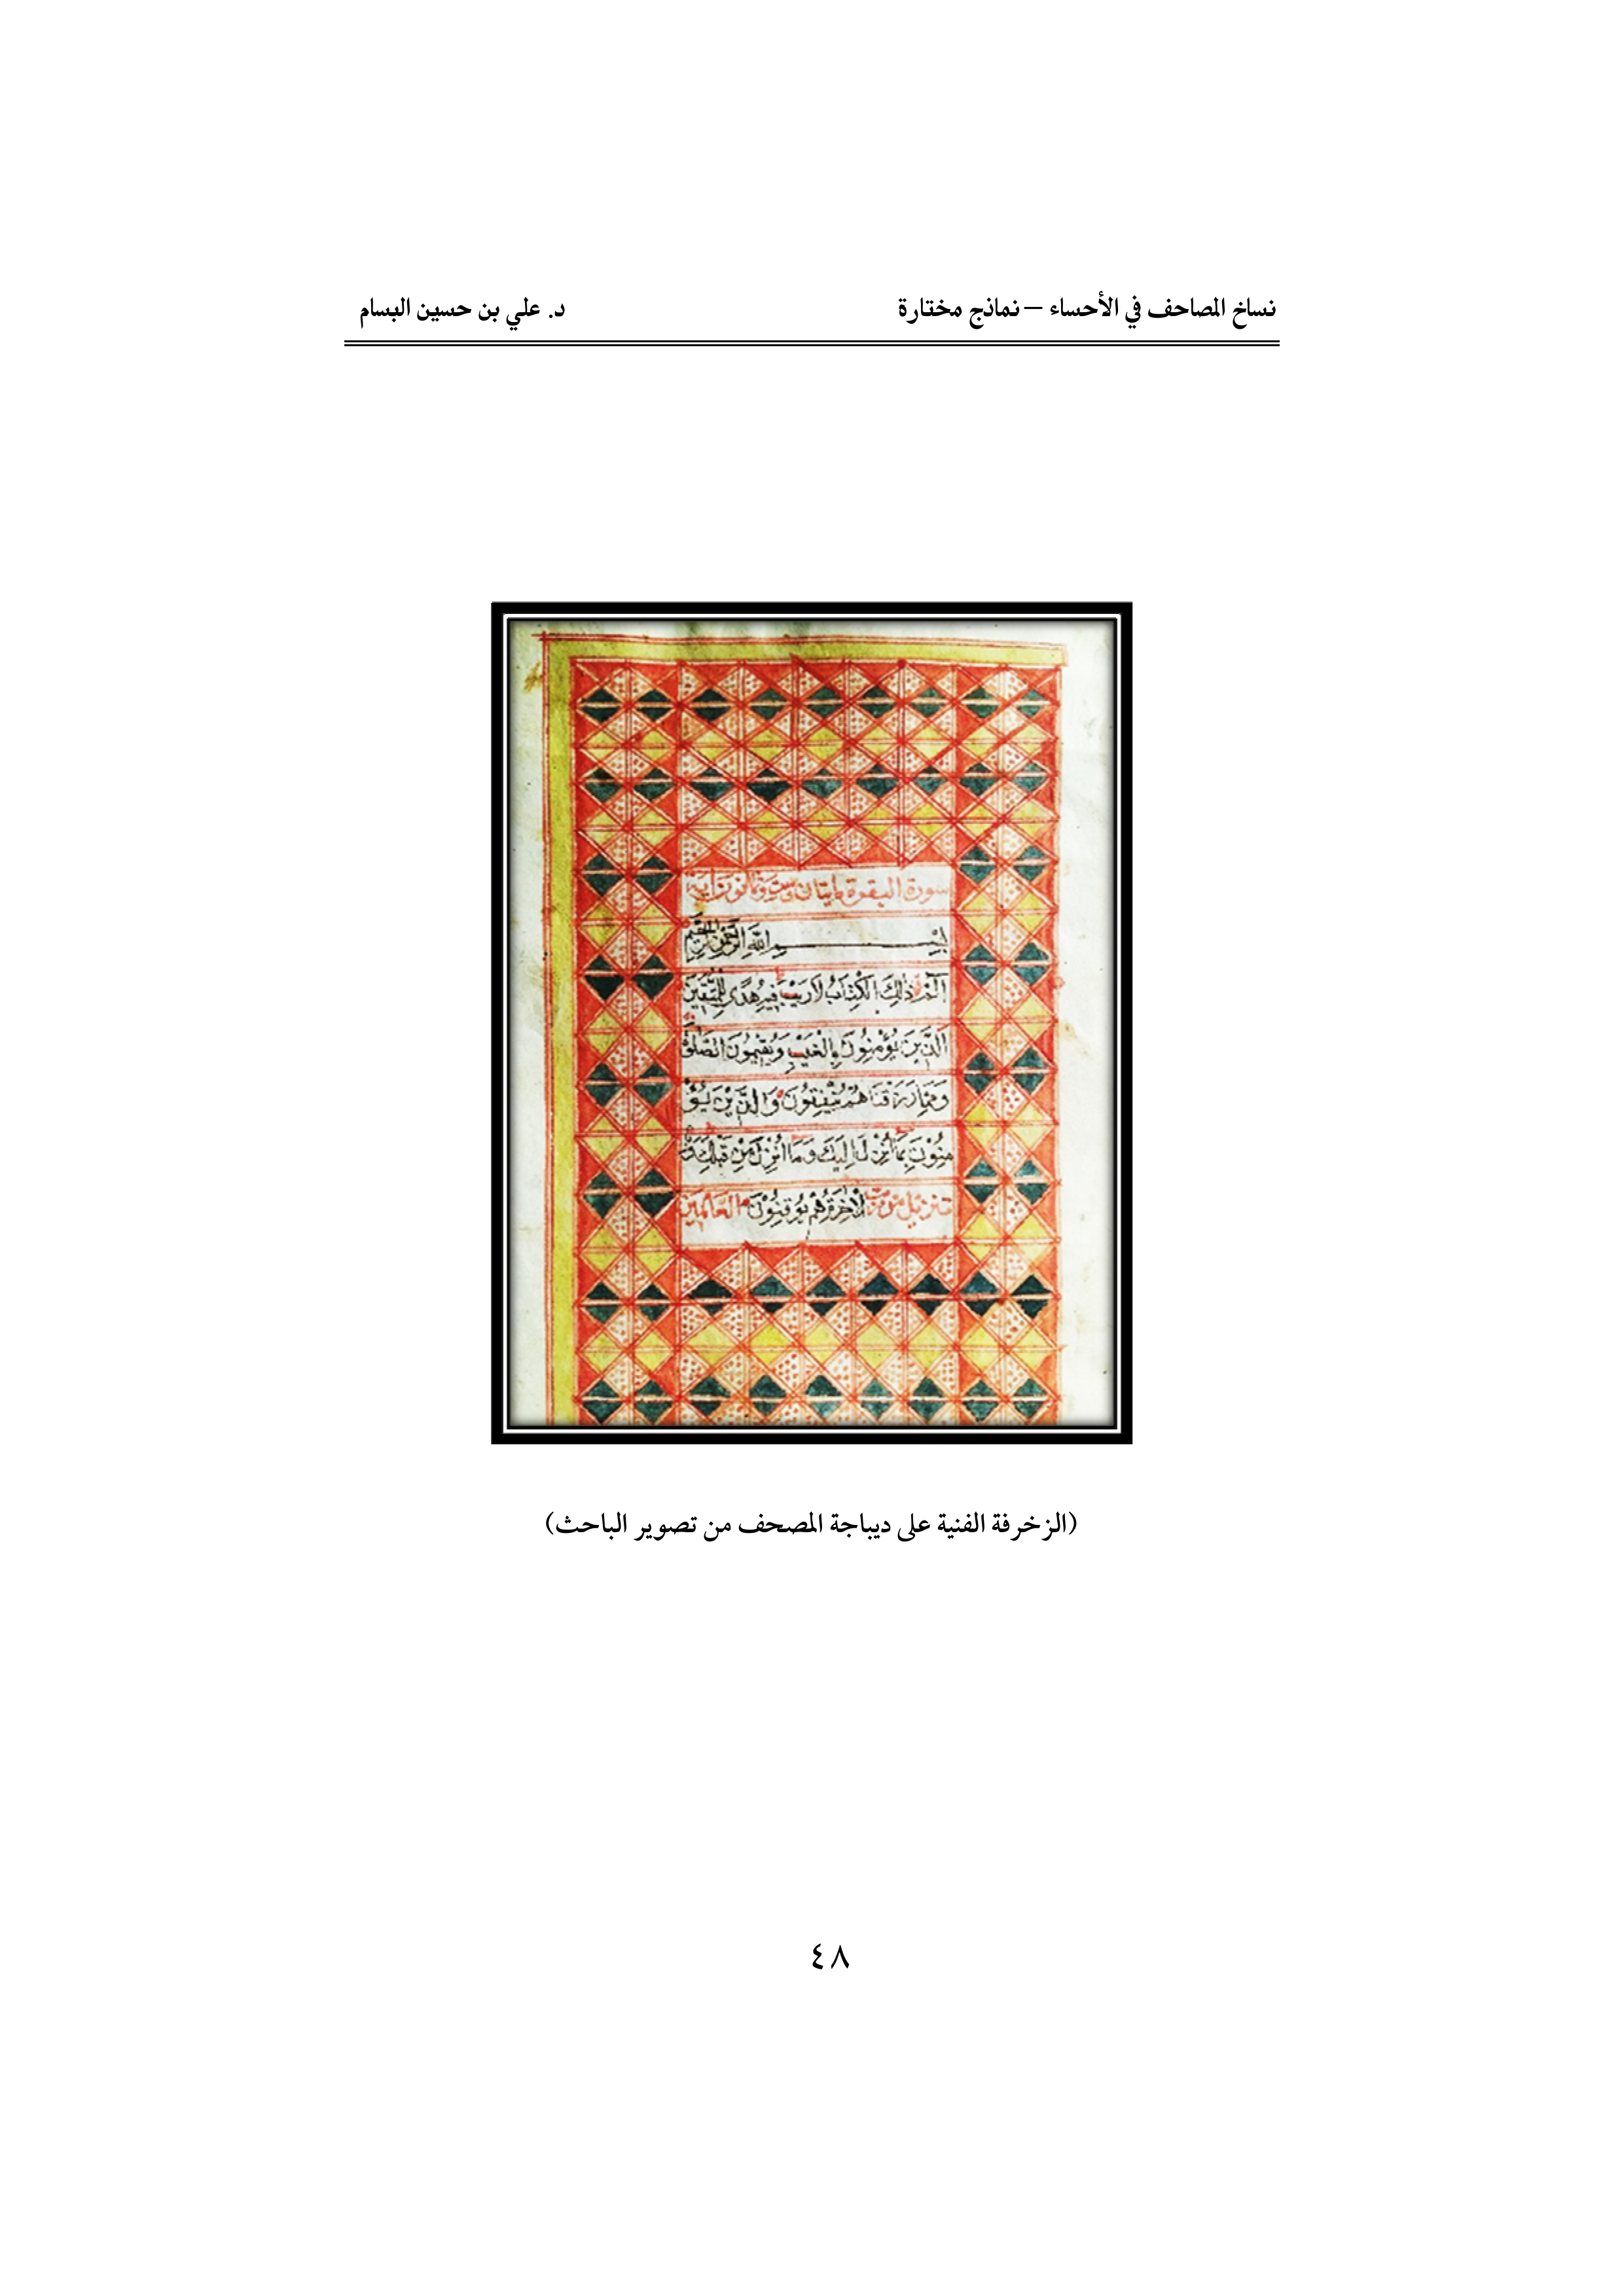 نساخ المصاحف في الأحساء – نماذج مختارة
د. علي بن حسين البسام
سورة البقرة مايتان وست وثمانون اية
بِسْمِ اللَّهِ الرَّحْمَنِ الرَّحِيمِ
الٓمٓ ذَلِكَ الْكِتَابُ لَا رَيْبَ فِيهِ هُدًى لِلْمُتَّقِينَ
الَّذِينَ يُؤْمِنُونَ بِالْغَيْبِ وَيُقِيمُونَ الصَّلٰوةَ
وَمِمَّا رَزَقْنَاهُمْ يُنْفِقُونَ وَالَّذِيْنَ يُؤْ
مِنُوْنَ بِمَا أُنْزِلَ إِلَيْكَ وَمَا أُنْزِلَ مِنْ قَبْلِكَ وَ
تنزيل من رب الْآخِرَةِ هُمْ يُوْقِنُوْنَ العالمين
(الزخرفة الفنية على ديباجة المصحف من تصوير الباحث)
٤٨